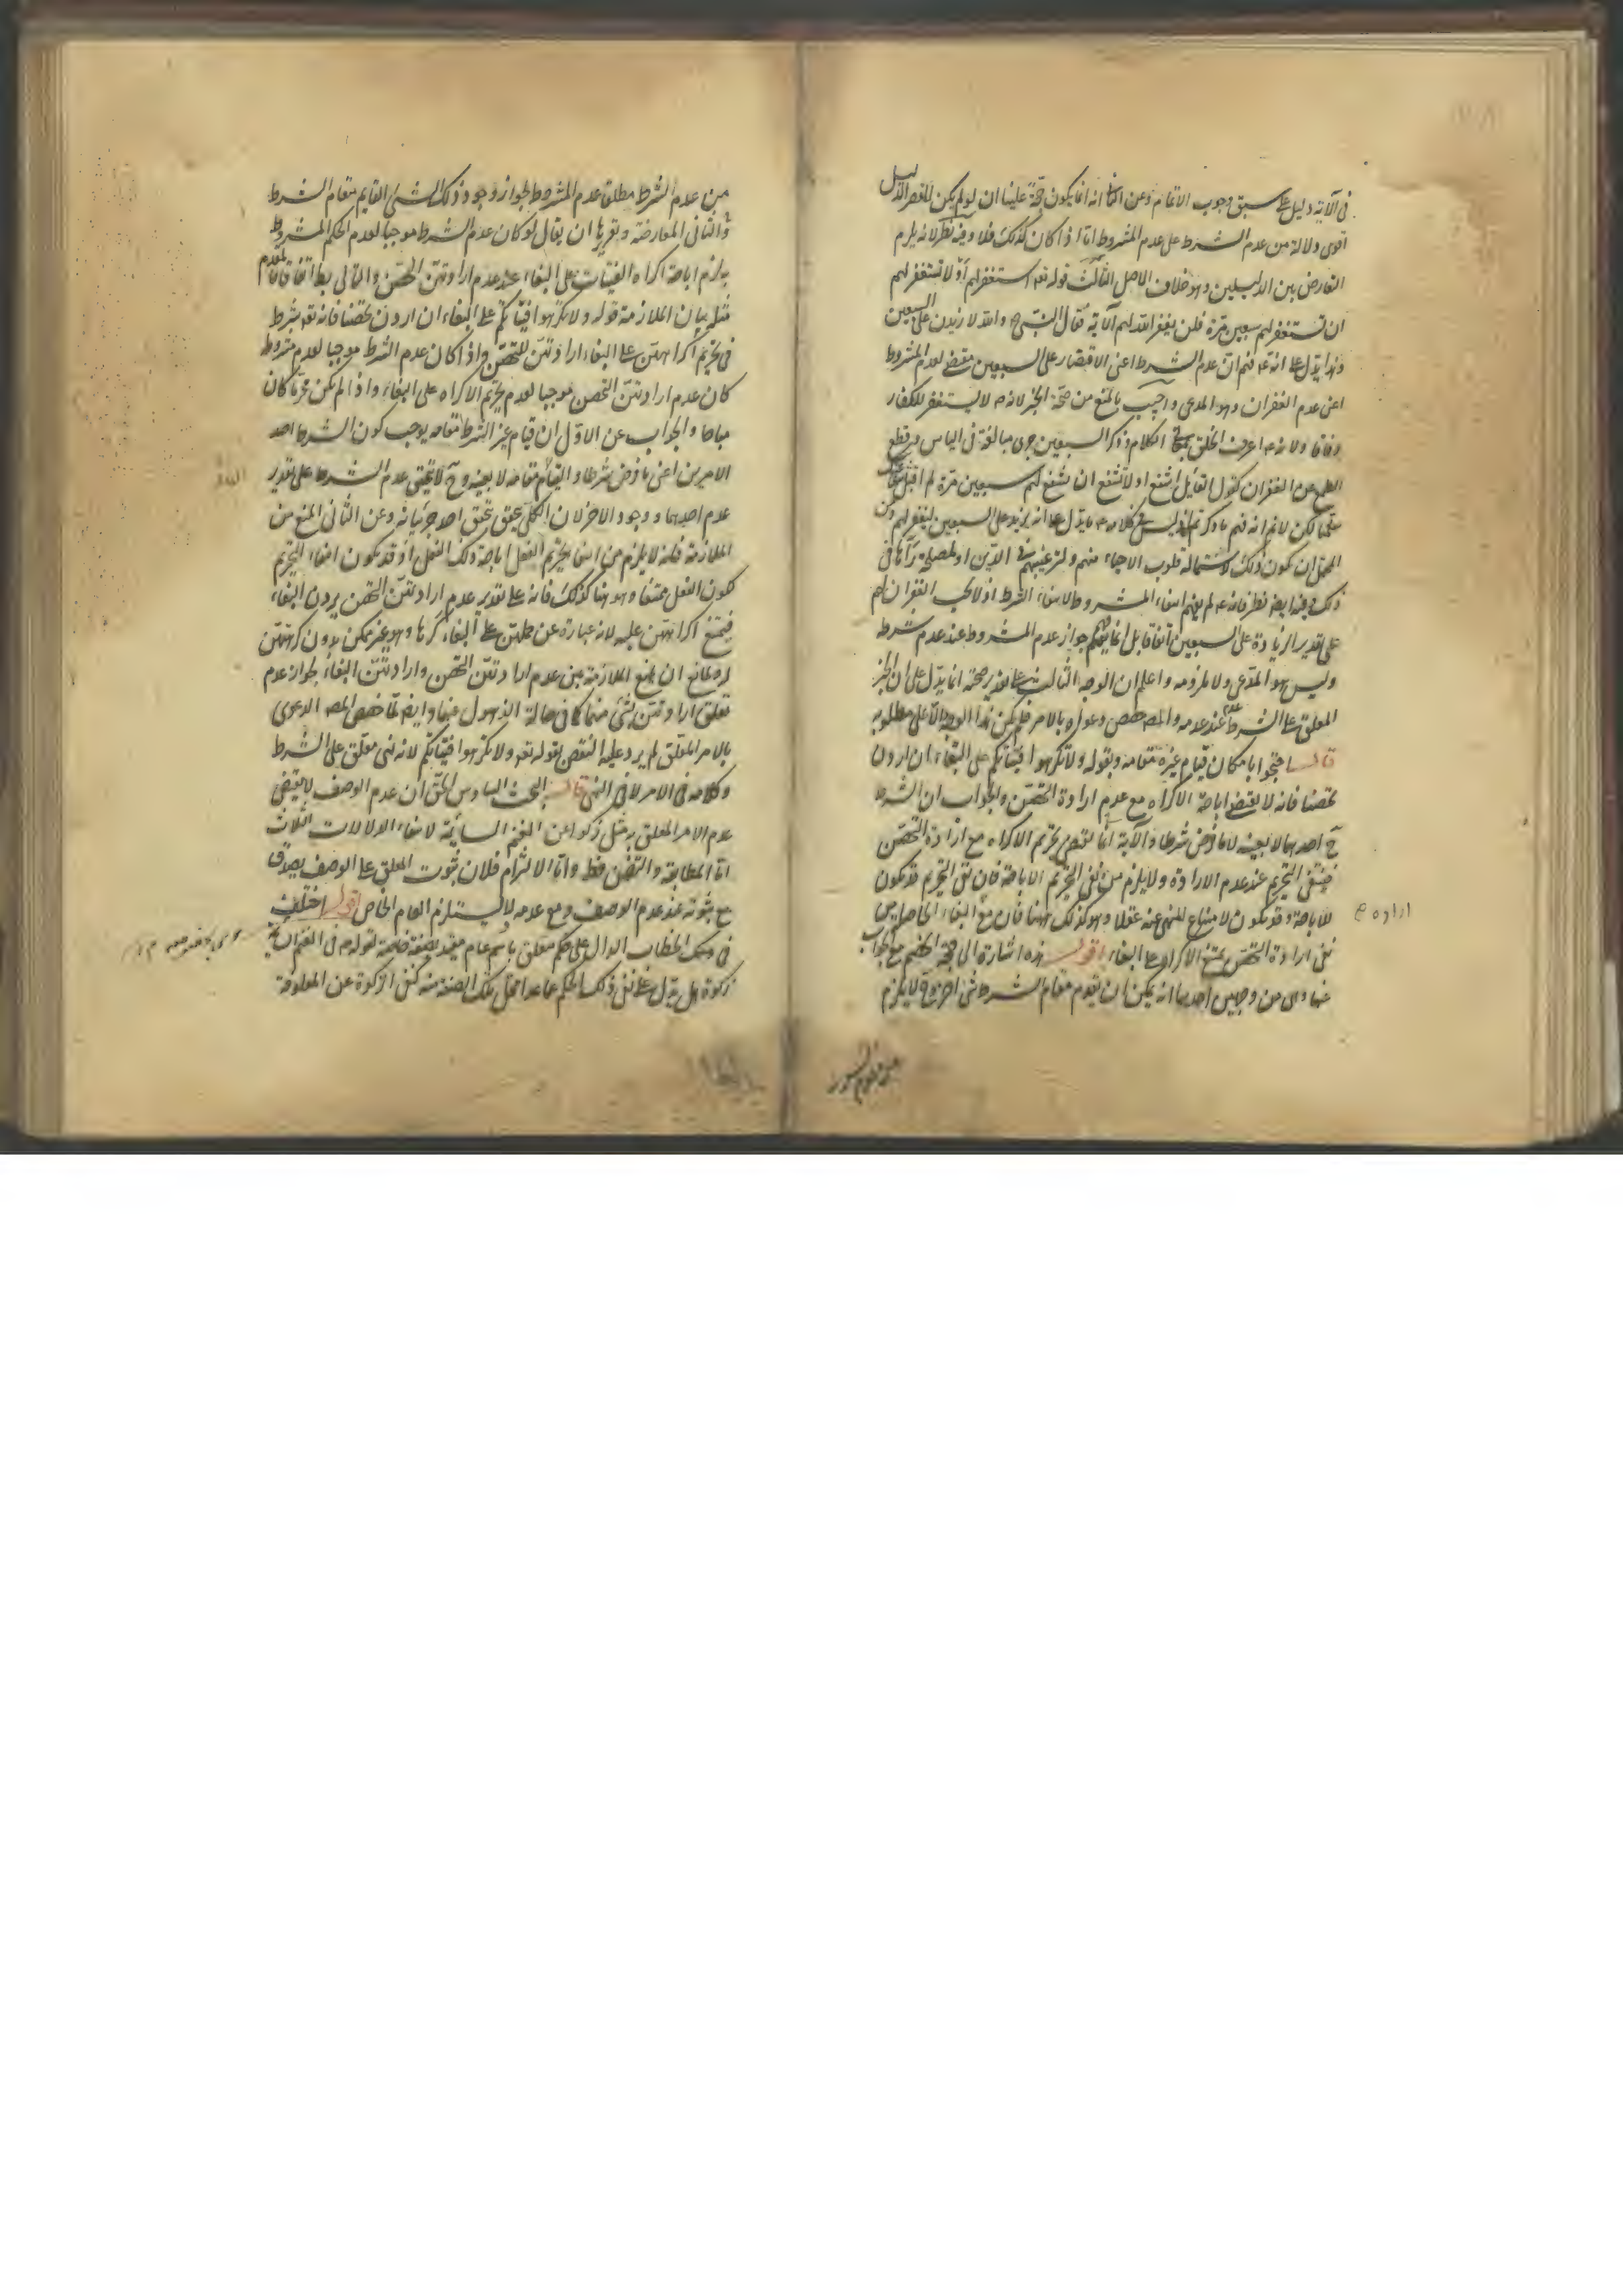 في الآية دليل على سبق وجوب الاتمام وعن الثاني انه انما يكون حجة علينا ان لو لم يكن للقصر دليل
اقوى دلالة من عدم الشرط على عدم المشروط اما اذا كان كذلك فلا وفيه نظر لانه يلزم
التعارض بين الدليلين وهو خلاف الاصل الثالث قوله تعه استغفر لهم او لا تستغفر لهم
ان تستغفر لهم سبعين مرة فلن يغفر الله لهم الآية فقال النبي ص والله لا زيدن على السبعين
وهذا يدل على انه عم فهم ان عدم الشرط اعني الاقتصار على السبعين مقتض لعدم المشروط
اعني عدم الغفران وهو المدعى واجيب بالمنع من صحة الخبر لانه ص لا يستغفر للكفار
وفاقا ولانه عم اعرف الخلق بمعاني الكلام وذكر السبعين جرى مبالغة في الياس وقطع
الطمع من الغفران كقول القايل اشفع او لا تشفع ان تشفع لهم سبعين مرة لم اقبل
سلمنا لكن لا نم انه فهم ما ذكرتم اذ ليس في كلامه عم ما يدل على انه يزيد على السبعين ليغفر لهم ومن
المحتمل ان يكون ذلك لاستمالة قلوب الاحياء منهم ولترغيبهم في الدين او لمصلحة رآها في
ذلك وفيه ايضا نظر فانه عم لم يفهم انتفاء المشروط لانتفاء الشرط اذ لا يجب الغفران لهم
على تقدير الزيادة على السبعين اتفاقا بل انما فهم جواز عدم المشروط عند عدم شرطه
وليس هو المدعى ولا ملزومه واعلم ان الوجه الثالث على تقدير صحته انما يدل على ان الخبر
المعلق على الشرط عدم عند عدمه والمص خصص دعواه بالامر فلم يكن هذا الوجه دالا على مطلوبه
قال احتجوا بامكان قيام غيره مقامه وبقوله ولا تكرهوا فتياتكم على البغاء ان اردن
تحصنا فانه لا يقتضي اباحة الاكراه مع عدم ارادة التحصن والجواب ان الشرط
ح احدهما لا بعينه لا ما فرض شرطا والآية انما تقتضي تحريم الاكراه مع ارادة التحصن
فينتفي التحريم عند عدم الارادة ولا يلزم من نفي التحريم الاباحة فان نفي التحريم قد يكون
للاباحة وقد يكون لامتناع المنهي عنه عقلا وهو كذلك ههنا فان مع البغاء الحاصل من
نفي ارادة التحصن يمتنع الاكراه على البغاء اقول هذه اشارة الى حجة الخصم مع جواب
عنها وهي من وجهين احدهما انه يمكن ان يقوم مقام الشرط شئ آخر وح لا يلزم
ارادة ح
من عدم الشرط مطلقا عدم المشروط لجواز وجود ذلك الشئ القايم مقام الشرط
والثاني المعارضة وتقريرها ان يقال لو كان عدم الشرط موجبا لعدم الحكم المشروط
يلزم اباحة اكراه الفتيات على البغاء عند عدم ارادتهن التحصن والتالي بط اتفاقا فالمقدم
مثله بيان الملازمة قوله ولا تكرهوا فتياتكم على البغاء ان اردن تحصنا فانه تعه شرط
في تحريم اكراههن على البغاء ارادتهن للتحصن واذا كان عدم الشرط موجبا لعدم مشروطه
كان عدم ارادتهن التحصن موجبا لعدم تحريم الاكراه على البغاء واذا لم يكن محرما كان
مباحا والجواب عن الاول ان قيام غير الشرط مقامه يوجب كون الشرط احد
الامرين اعني ما فرض شرطا والقايم مقامه لا بعينه وح لا يتحقق عدم الشرط على تقدير
عدم احدهما ووجود الاخر لان الكلي يتحقق بتحقق احد جزئياته وعن الثاني المنع من
الملازمة فانه لا يلزم من انتفاء تحريم الفعل اباحة ذلك الفعل اذ قد يكون انتفاء التحريم
لكون الفعل ممتنعا وهو ههنا كذلك فانه على تقدير عدم ارادتهن التحصن يردن البغاء
فيمتنع اكراههن عليه لانه عبارة عن حملهن على البغاء كرها وهو غير ممكن بدون كراهتهن
له ولمانع ان يمنع الملازمة بين عدم ارادتهن التحصن وارادتهن البغاء لجواز عدم
تعلق ارادتهن بشئ منهما كما في حالة الذهول عنهما وايضا لما خصص المص الدعوى
بالامر المعلق لم يرد عليه النقض بقوله تعه ولا تكرهوا فتياتكم لانه نهي معلق على الشرط
وكلامه في الامر لا في النهي قال البحث السادس الحق ان عدم الوصف لا يقتضي
عدم الامر المعلق به مثل زكوا عن الغنم السائمة لانتفاء الدلالات الثلاث
اما المطابقة والتضمن فظ واما الالتزام فلان ثبوت المعلق على الوصف يصدق
مع ثبوته عند عدم الوصف ومع عدمه ولا يستلزم العام الخاص اقول اختلف
في ان الخطاب الدال على حكم معلق باسم عام مقيد بصفة خاصة كقوله ص في الغنم السائمة
زكوة هل يدل على نفي ذلك الحكم عما عدا محل تلك الصفة منه كنفي الزكوة عن المعلوفة